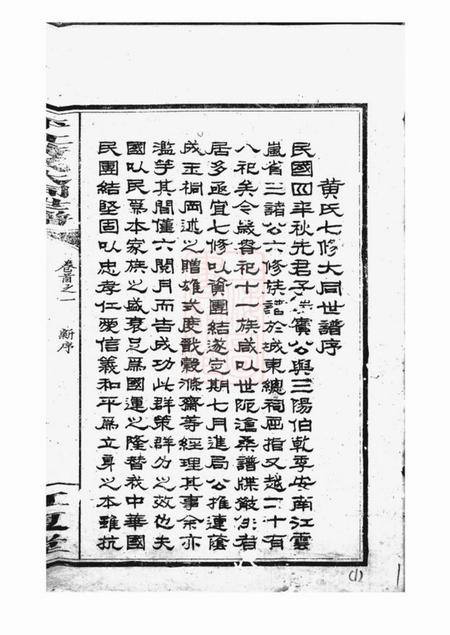 黄氏七修大同世譜序
民國四年秋先君子公與三陽伯乾季安南江雲
嵐省三諸公六修族譜於城東總祠屈指又越二十有
八祀矣令歲眷祀十族咸以世阨滄桑譜牒散者
居多亟宜七修以資團結遂定期七月進局公推蓮蔭
成玉桐岡述之贈雄式度獻毅滌齋等經理其事余亦
濫竽其間僅六閱月而告成功此群策群力之效也夫
國以民爲本家族之盛衰足爲國運之隆替我中華國
民團結堅固以忠孝仁愛信義和平爲立身之本雖抗
卷首之一
新序
(1)
1